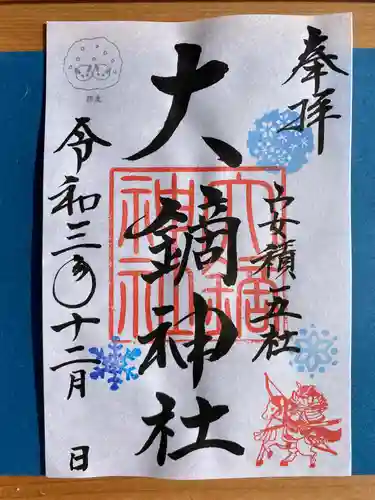 奉拝
安積一五社
大鏑神社
大鏑
神社
令和三年十二月 日